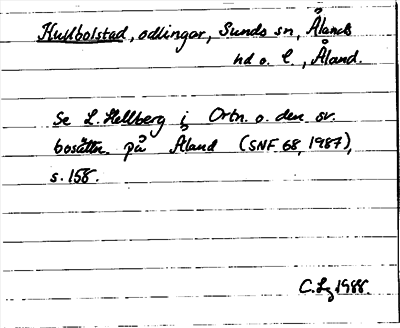 Kullbolstad, odlingar, Sunds sn, Ålands
hd o. l., Åland.
Se L. Hellberg i Ortn. o. den sv.
bosättn. på Åland (SNF 68, 1987),
s. 158.
C. Lg 1988.